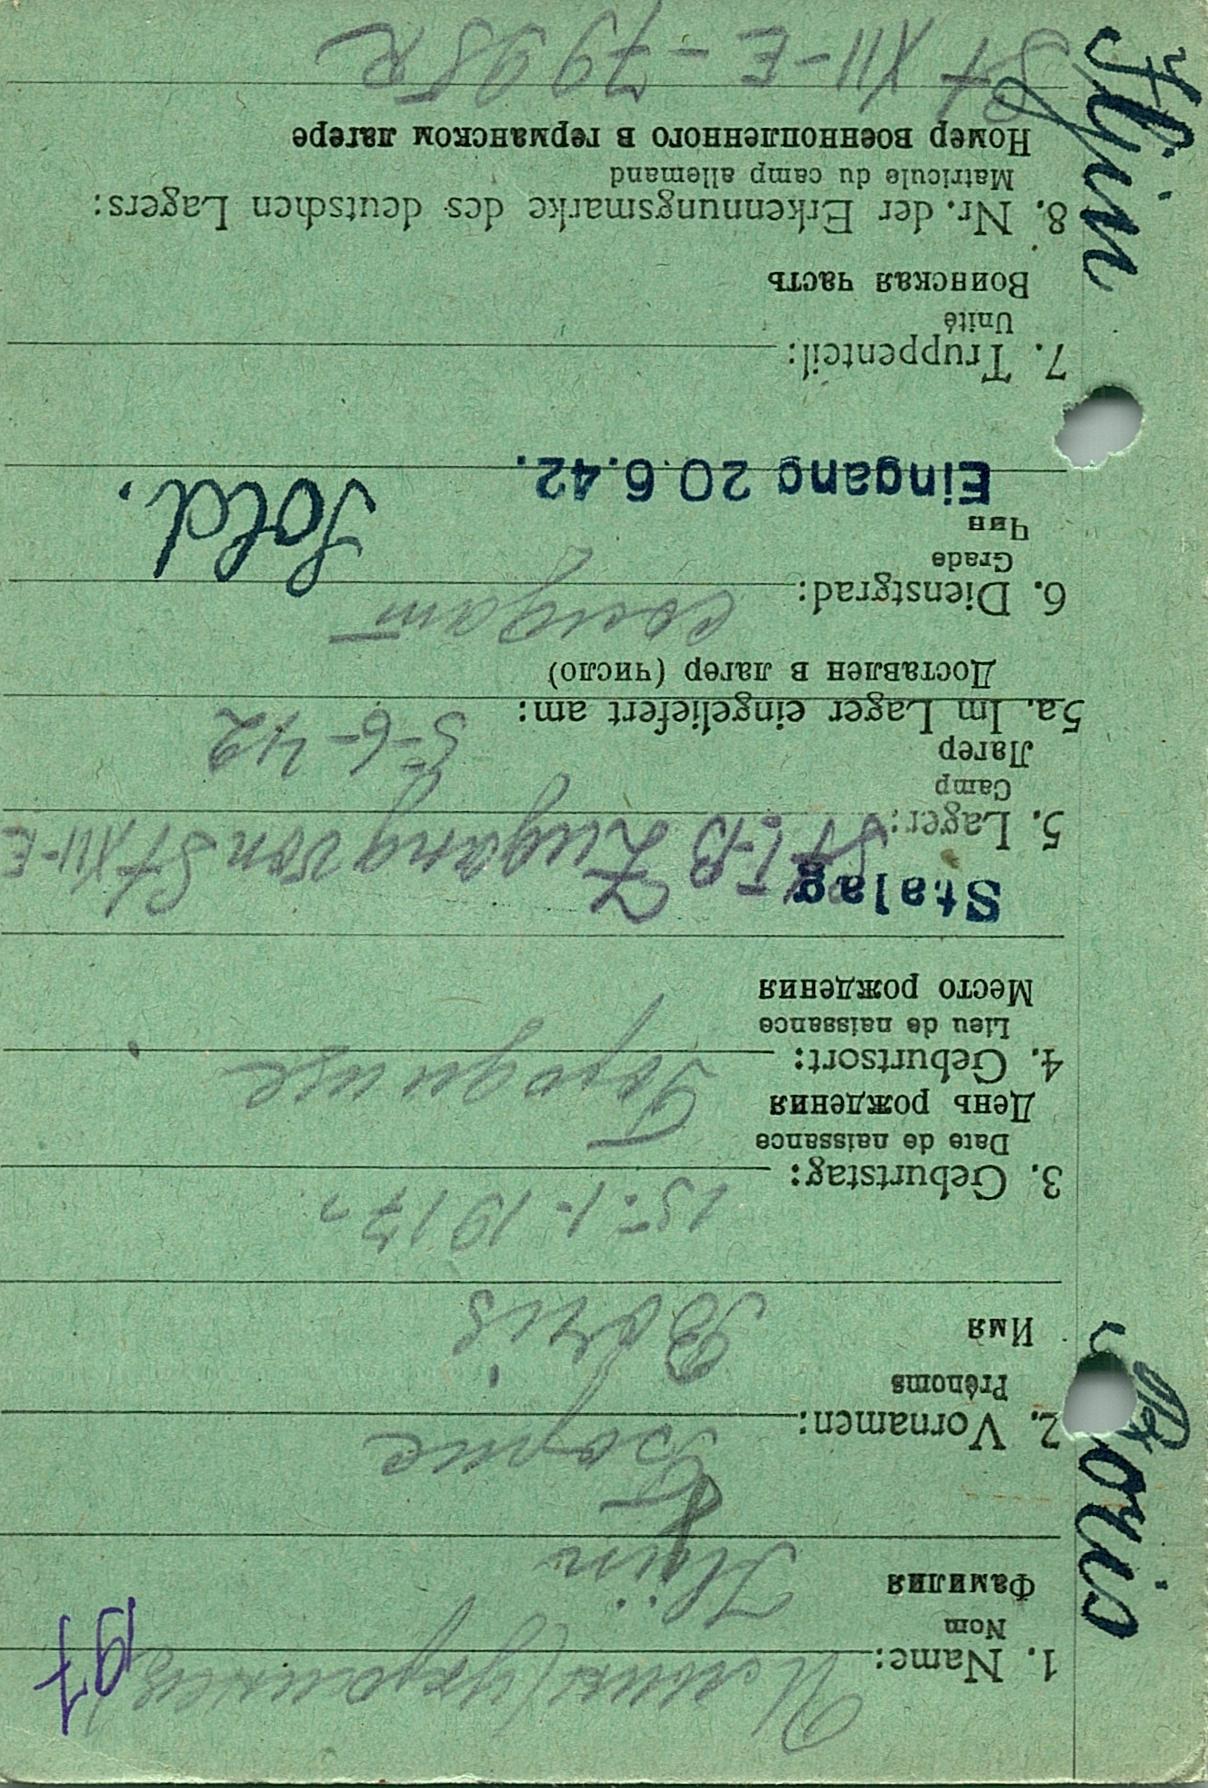 197
1. Name: Ильин (украинец)
Nom
Фамилия
Iljin
2. Vornamen: Борис
Prénoms
Имя
Boris
3. Geburtstag: 15-1-1917 г
Date de naissance
День рождения
4. Geburtsort: Городище
Lieu de naissance
Место рождения
Stalag
5. Lager: St I-B Zugang von St XII-E
Camp
Лагерь
5a. Im Lager eingeliefert am: 5-6-42
Доставлен в лагерь (число)
6. Dienstgrad: солдат Sold.
Grade
Чин
Eingang 20.6.42.
7. Truppenteil:
Unité
Воинская часть
8. Nr. der Erkennungsmarke des deutschen Lagers:
Matricule du camp allemand
Номер военнопленного в германском лагере
St XII-E-7998 R
Boris Iljin